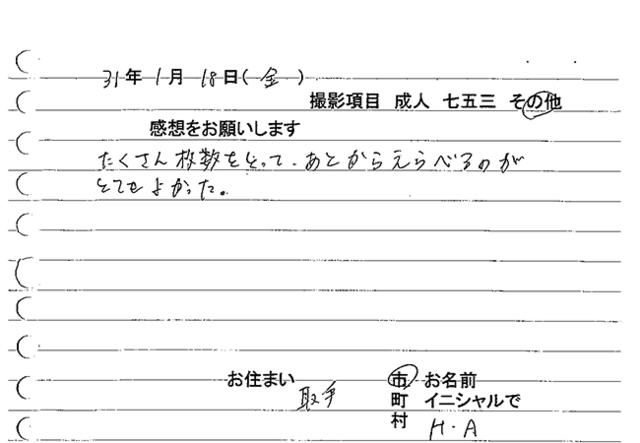 31年1月18日(金)
撮影項目 成人 七五三 その他
感想をお願いします
たくさん枚数をとって、あとからえらべるのが
とてもよかった。
お住まい 取手 市 お名前
町 イニシャルで
村 H.A